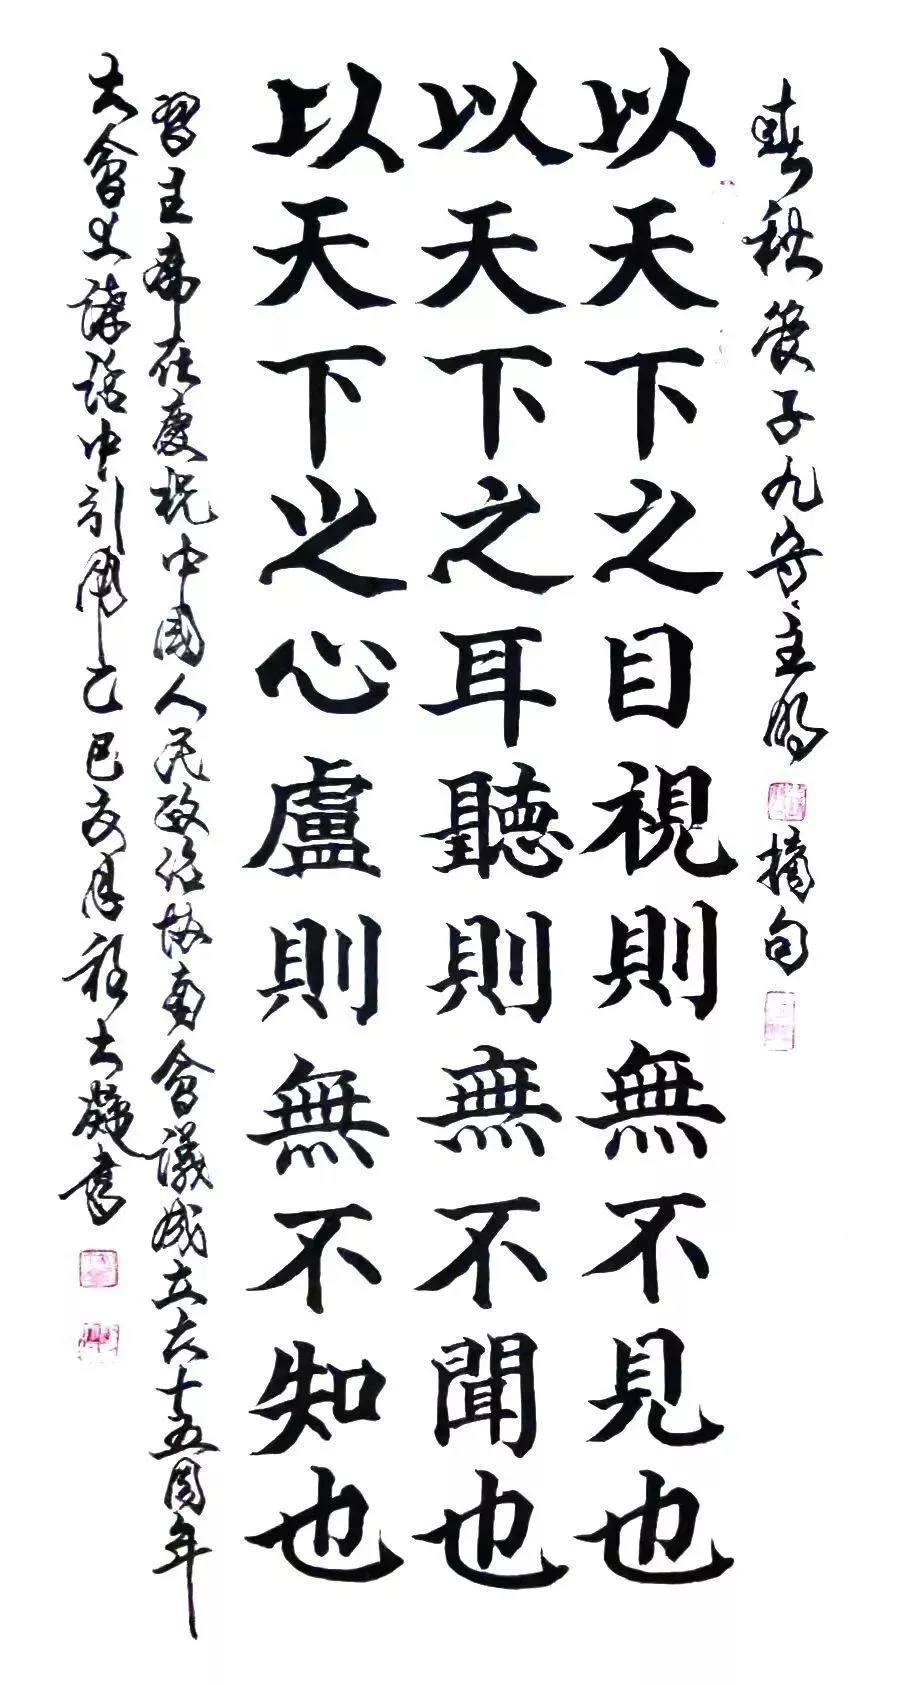 春秋管子九守主明摘句
以天下之目視則無不見也
以天下之耳聽則無不聞也
以天下之心盧則無不知也
習主席在慶祝中國人民政治協商會議成立六十五周年
大會上講話中引用巳月大書